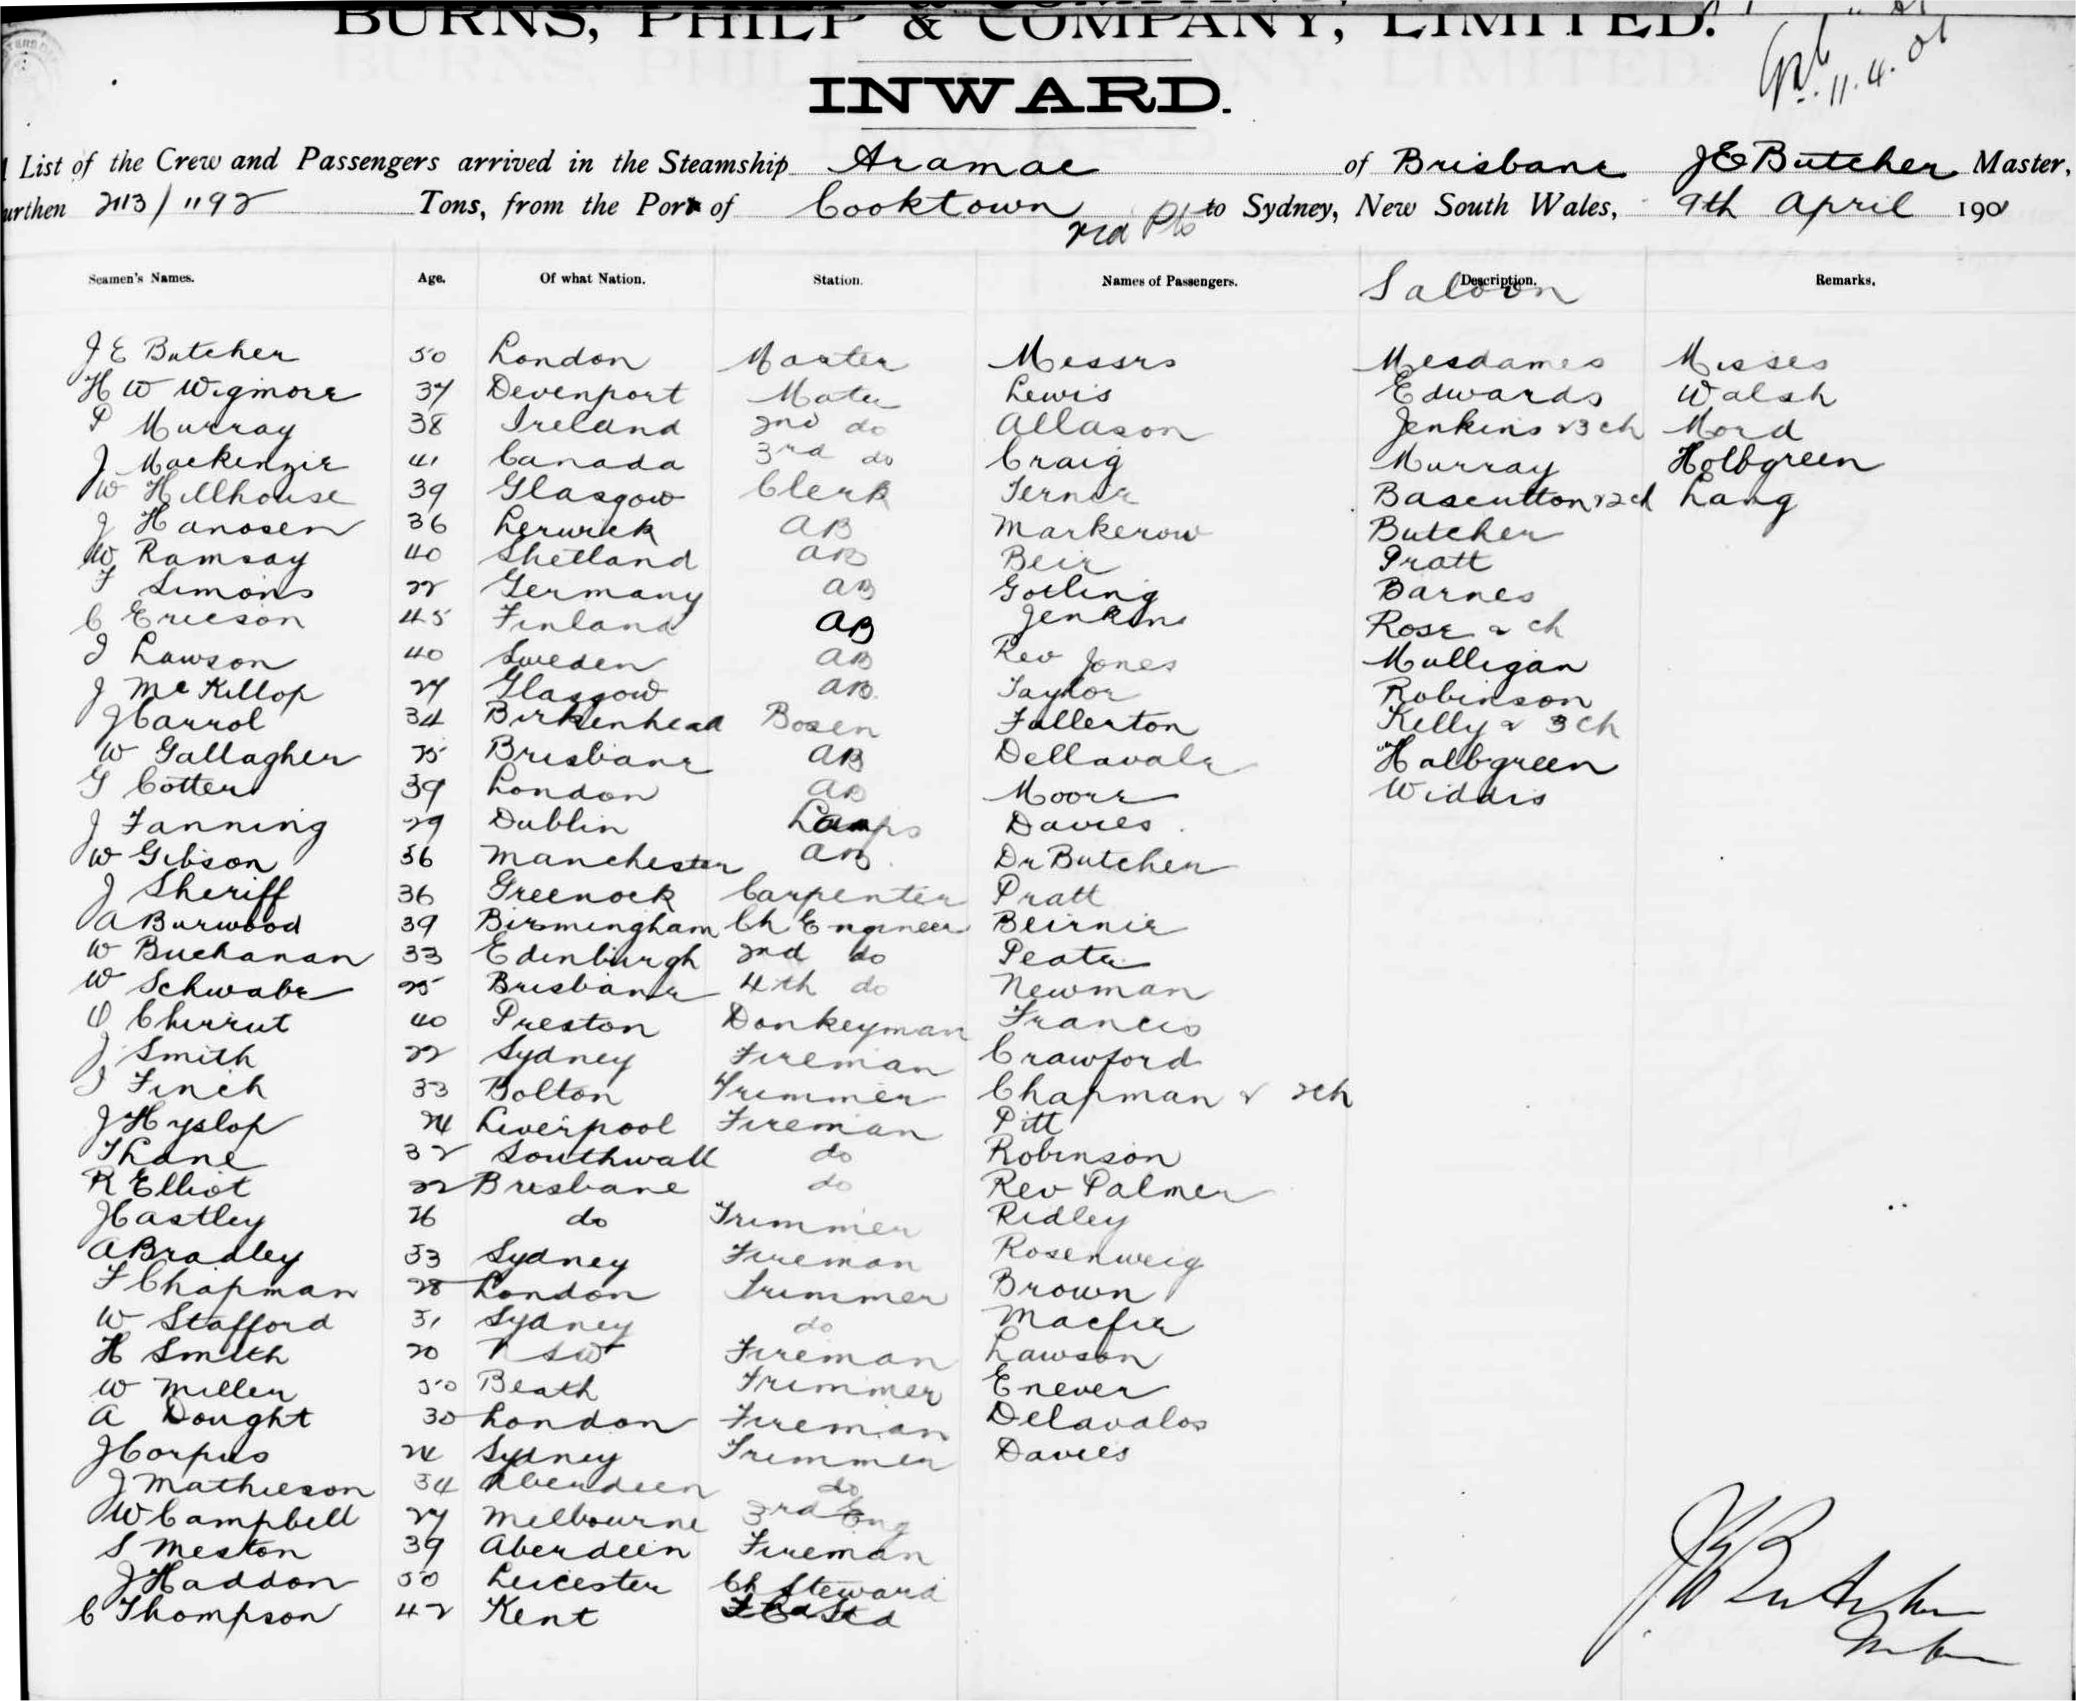 BURNS, PHILP & COMPANY, LIMITED.
INWARD.
11.4.01
List of the Crew and Passengers arrived in the Steamship Aramac of Brisbane J E Butcher Master,
urthen 2113/1192 Tons, from the Port of Cooktown via Pts to Sydney, New South Wales, 9th April 1901
Seamen's Names. Age. Of what Nation. Station. Names of Passengers. Description. Saloon Remarks.
J E Butcher 50 London Master Messrs Mesdames Misses
H W Wigmore 37 Devenport Mate Lewis Edwards Walsh
P Murray 38 Ireland 2nd do Allason Jenkins & 3 ch Mord
J Mackenzie 41 Canada 3rd do Craig Murray Holbgreen
W Hillhouse 39 Glasgow Clerk Ferner Baseutton & 2 ch Lang
J Hanosen 36 Lerwick AB Markerow Butcher
W Ramsay 40 Shetland AB Beir Pratt
F Simons 22 Germany AB Goiling Barnes
C Ericson 45 Finland AB Jenkins Rose & ch
J Lawson 40 Sweden AB Rev Jones Mulligan
J McKillop 27 Glasgow AB Taylor Robinson
J Carrol 34 Birkenhead Bosen Fullerton Kelly & 3 ch
W Gallagher 25 Brisbane AB Dellavale Halbgreen
G Cotter 39 London AB Moore Widdis
J Fanning 29 Dublin Lamps Davies
W Gibson 36 Manchester AB Dr Butcher
J Sheriff 36 Greenock Carpenter Pratt
A Burwood 39 Birmingham Ch Engineer Beirnie
W Buchanan 33 Edinburgh 2nd do Peate
W Schwabe 25 Brisbane 4th do Newman
Chirrut 40 Preston Donkeyman Francis
J Smith 22 Sydney Fireman Crawford
J Finch 33 Bolton Trimmer Chapman & 2 ch
J Hyslop 24 Liverpool Fireman Pitt
T Lane 32 Southwall do Robinson
R Elliot 22 Brisbane do Rev Palmer
J Castley 26 do Trimmer Ridley
A Bradley 33 Sydney Fireman Rosenweig
F Chapman 28 London Trimmer Brown
W Stafford 31 Sydney do Macfie
H Smith 20 NSW Fireman Lawson
W Miller 50 Beath Trimmer Enever
A Dought 30 London Fireman Delavalos
J Corpus 24 Sydney Trimmer Davies
J Mathieson 34 Aberdeen do
W Campbell 27 Melbourne 3rd Eng
S Meston 39 Aberdeen Fireman
J Haddon 50 Leicester Ch Steward
C Thompson 42 Kent
J E Butcher
Master